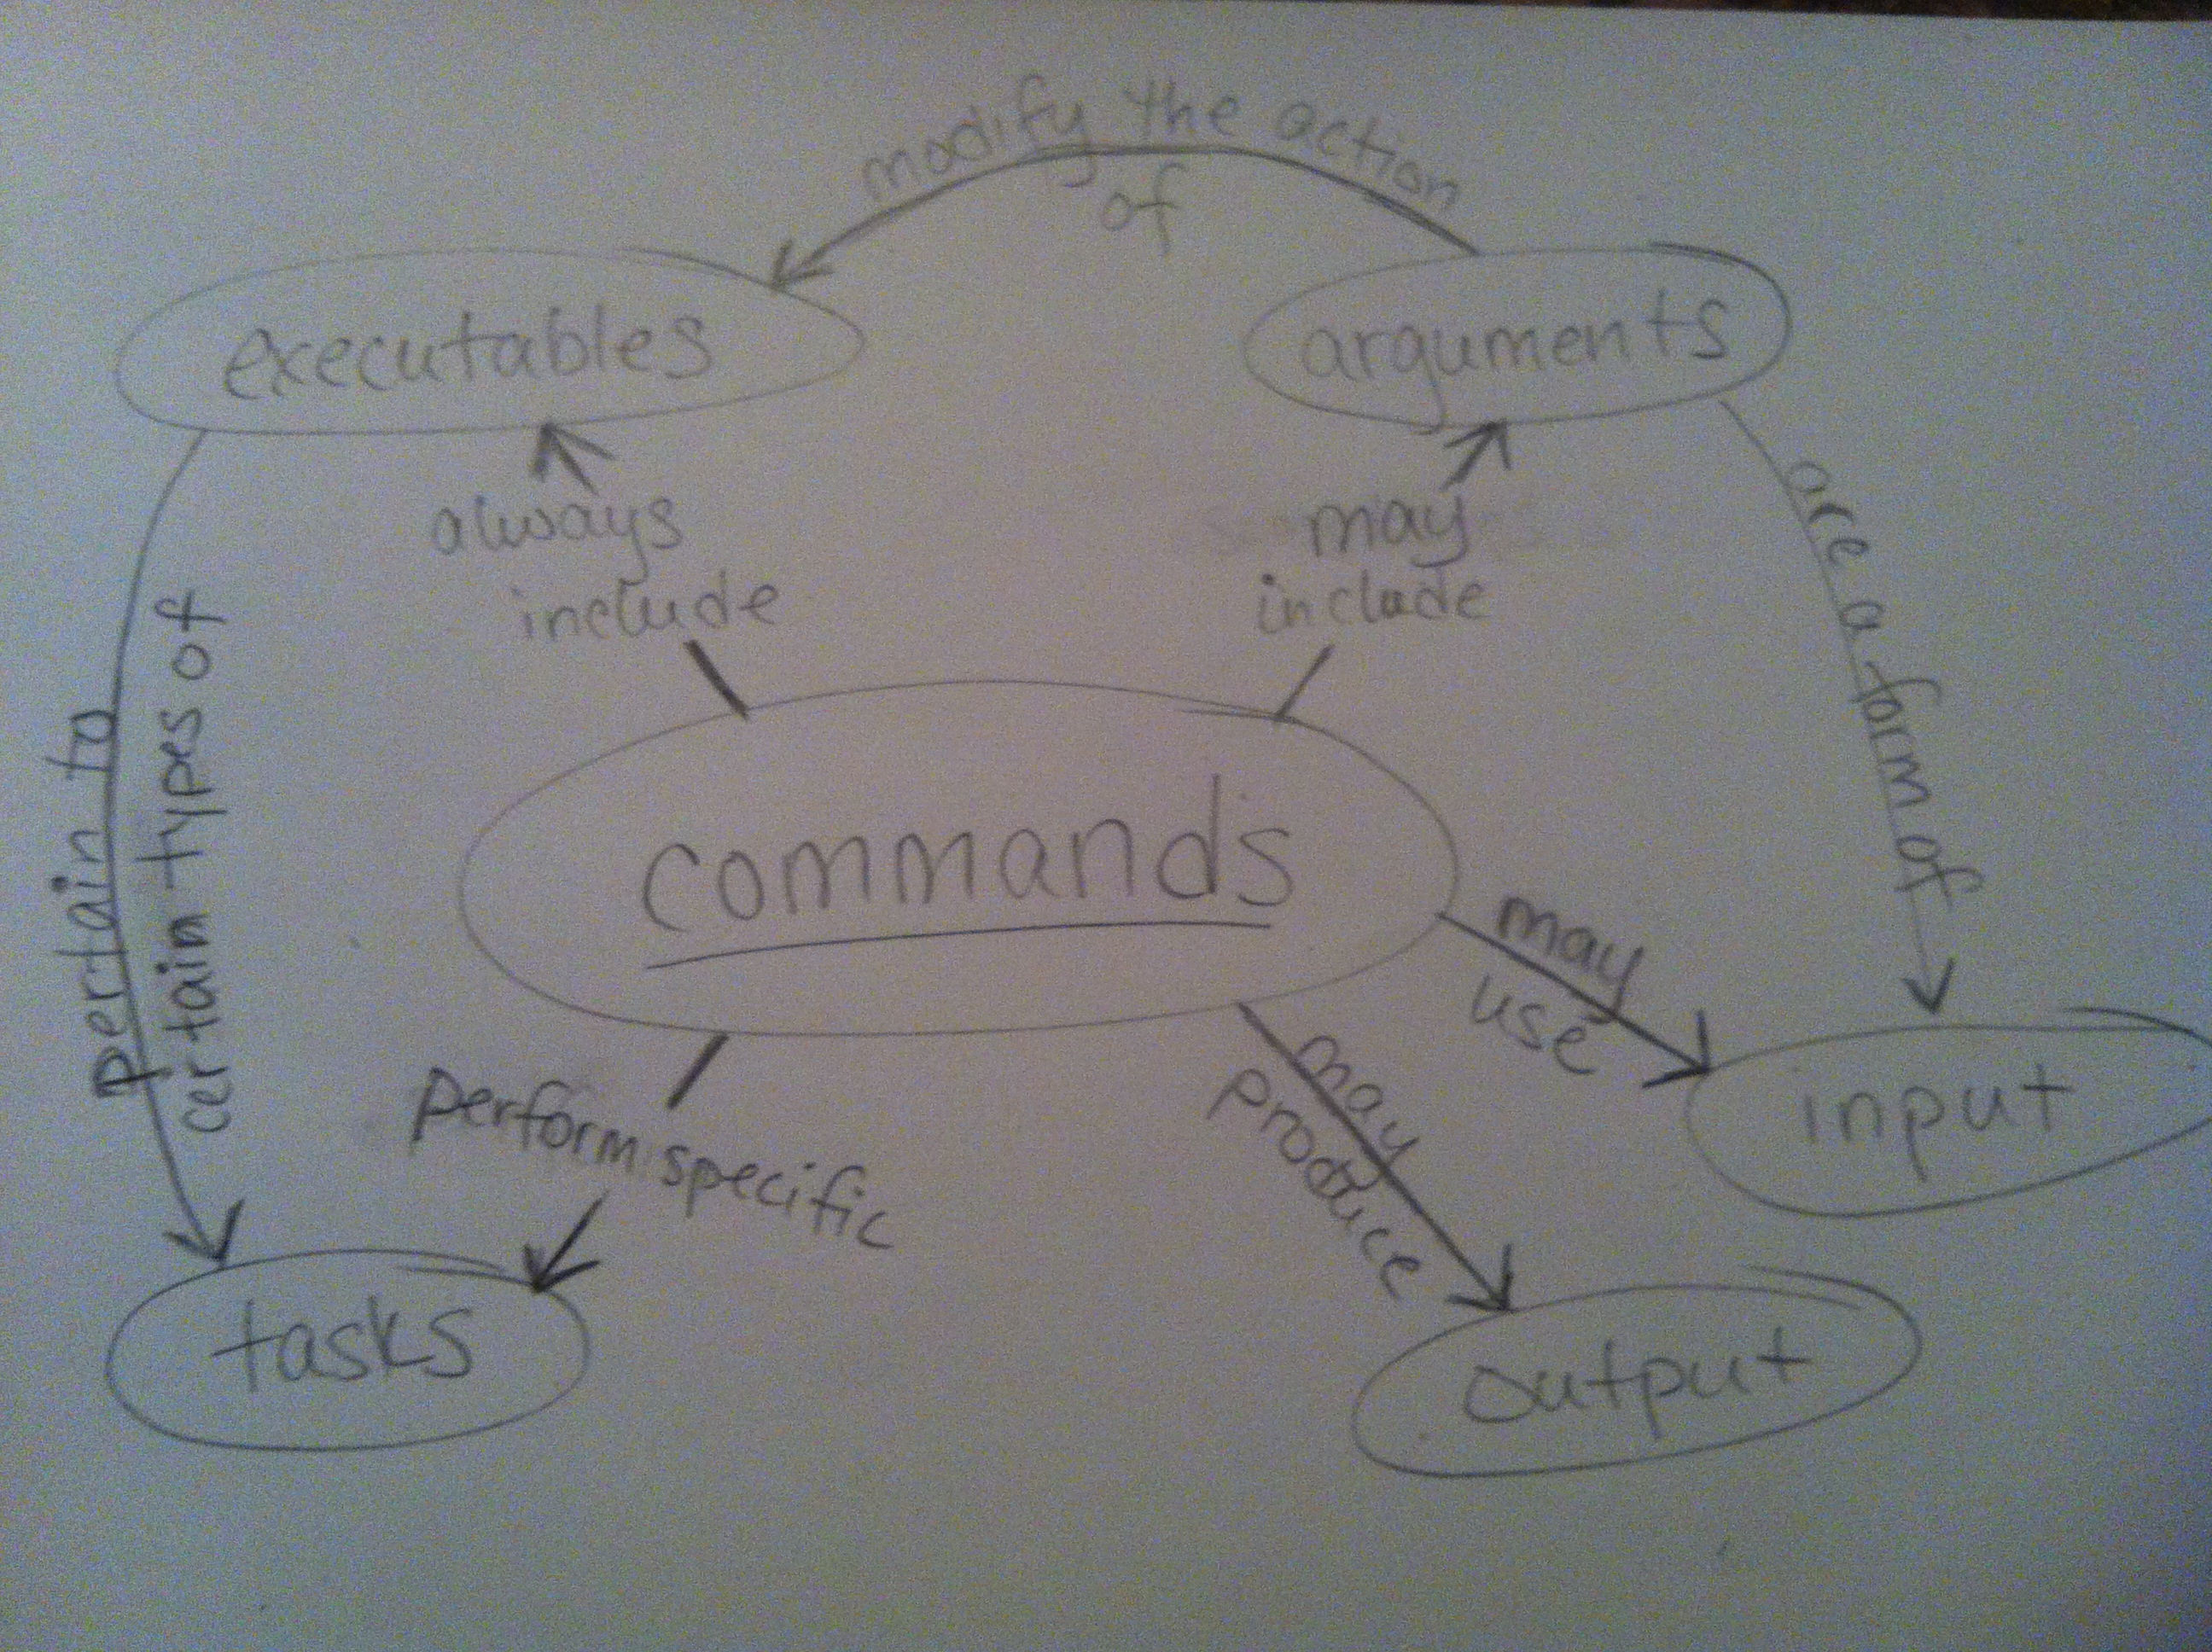 modify the action
of
executables
arguments
always
include
may
include
are a form of
pertain to
certain types of
commands
may
use
perform specific
may
produce
input
tasks
output